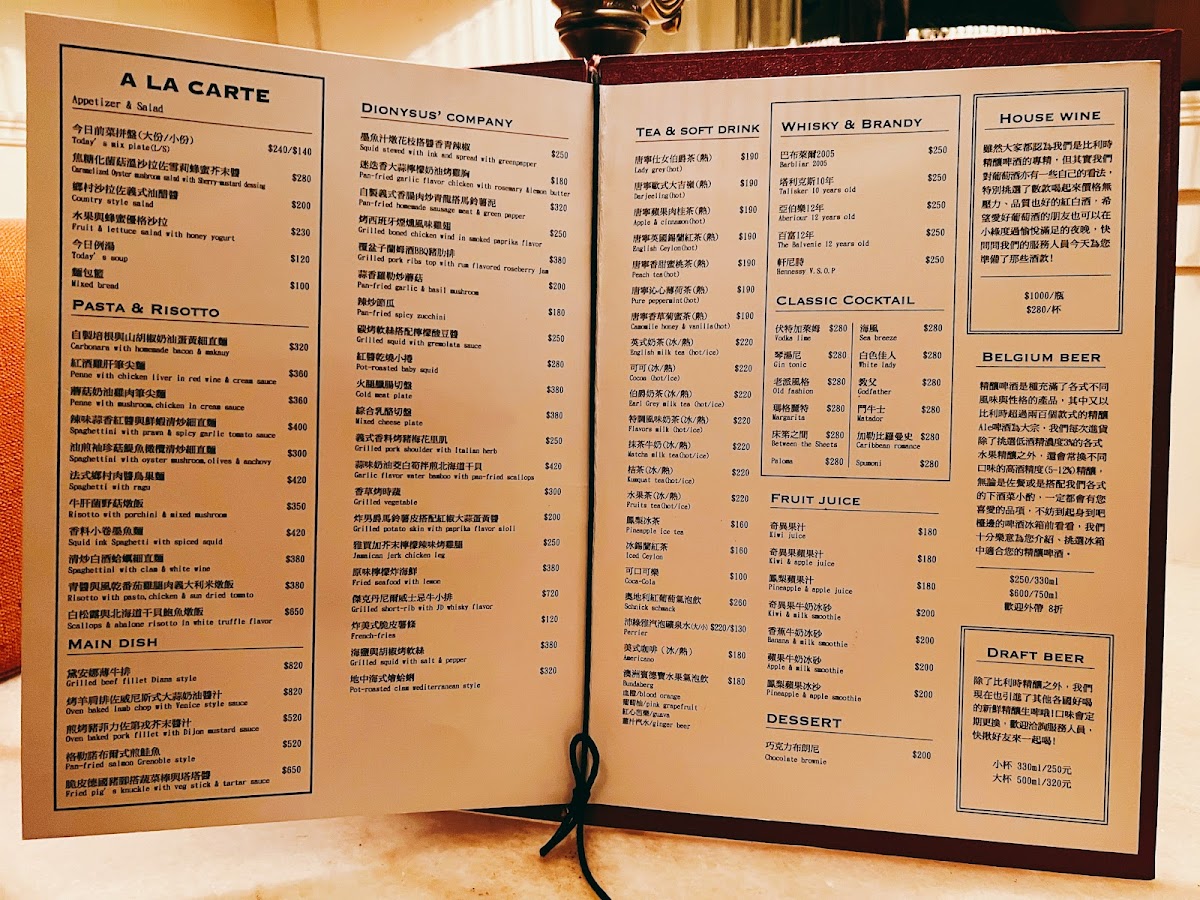 A LA CARTE
Appetizer & Salad
今日前菜拼盤(大份/小份)
Today's mix plate(L/S) $240/$140
焦糖化菌菇溫沙拉佐雪莉蜂蜜芥末醬
Caramelized Oyster mushroom salad with Sherry-mustard dressing $280
鄉村沙拉佐義式油醋醬
Country style salad $200
水果與蜂蜜優格沙拉
Fruit & lettuce salad with honey yogurt $230
今日例湯
Today's soup $120
麵包籃
Mixed bread $100
PASTA & RISOTTO
自製培根與山胡椒奶油蛋黃細直麵
Carbonara with homemade bacon & makauy $320
紅酒雞肝筆尖麵
Penne with chicken liver in red wine & cream sauce $360
蘑菇奶油雞肉筆尖麵
Penne with mushroom,chicken in cream sauce $360
辣味蒜香紅醬與鮮蝦清炒細直麵
Spaghettini with prawn & spicy garlic tomato sauce $400
油煎袖珍菇鯷魚橄欖清炒細直麵
Spaghettini with oyster mushroom,olives & anchovy $300
法式鄉村肉醬鳥巢麵
Spaghetti with ragu $420
牛肝菌野菇燉飯
Risotto with porchini & mixed mushroom $350
香料小卷墨魚麵
Squid ink Spaghetti with spiced squid $420
清炒白酒蛤蠣細直麵
Spaghettini with clam & white wine $380
青醬與風乾番茄雞腿肉義大利米燉飯
Risotto with pasto,chicken & sun dried tomato $380
白松露與北海道干貝鮑魚燉飯
Scallops & abalone risotto in white truffle flavor $650
MAIN DISH
黛安娜薄牛排
Grilled beef fillet Diana style $820
烤羊肩排佐威尼斯式大蒜奶油醬汁
Oven baked lamb chop with Venice style sauce $820
煎烤豬菲力佐第戎芥末醬汁
Oven baked pork fillet with Dijon mustard sauce $520
格勒諾布爾式煎鮭魚
Pan-fried salmon Grenoble style $520
脆皮德國豬腳搭蔬菜棒與塔塔醬
Fried pig's knuckle with veg stick & tartar sauce $650
DIONYSUS' COMPANY
墨魚汁燉花枝搭醬香青辣椒
Squid stewed with ink and spread with greenpapper $250
迷迭香大蒜檸檬奶油烤雞胸
Pan-fried garlic flavor chicken with rosemary &lemon butter $180
自製義式香腸肉炒青龍搭馬鈴薯泥
Pan-fried homemade sausage meat & green papper $320
烤西班牙煙燻風味雞翅
Grilled boned chicken wind in smoked paprika flavor $250
覆盆子蘭姆酒BBQ豬肋排
Grilled pork ribs top with rum flavored roseberry jam $380
蒜香羅勒炒蘑菇
Pan-fried garlic & basil mushroom $200
辣炒節瓜
Pan-fried spicy zucchini $180
碳烤軟絲搭配檸檬酸豆醬
Grilled squid with gremolata sauce $250
紅醬乾燒小捲
Pot-roasted baby squid $280
火腿臘腸切盤
Cold meat plate $380
綜合乳酪切盤
Mixed cheese plate $380
義式香料烤豬梅花肌肌
Grilled pork shoulder with Italian herb $250
蒜味奶油茭白筍拌煎北海道干貝
Garlic flavor water bamboo with pan-fried scallops $420
香草烤時蔬
Grilled vegetable $300
炸男爵馬鈴薯皮搭配紅椒大蒜蛋黃醬
Grilled potato skin with paprika flavor aioli $200
雅買加芥末檸檬辣味烤雞腿
Jamaican jerk chicken leg $250
原味檸檬炸海鮮
Fried seafood with lemon $380
傑克丹尼爾威士忌牛小排
Grilled short-rib with JD whisky flavor $720
炸美式脆皮薯條
French-fries $120
海鹽與胡椒烤軟絲
Grilled squid with salt & pepper $380
地中海式燴蛤蜊
Pot-roasted clam mediterranean style $320
TEA & SOFT DRINK
唐寧仕女伯爵茶(熱) $190
Lady grey(hot)
唐寧歐式大吉嶺(熱) $190
Darjeeling(hot)
唐寧蘋果肉桂茶(熱) $190
Apple & cinnamon(hot)
唐寧英國錫蘭紅茶(熱) $190
English Ceylon(hot)
唐寧香甜蜜桃茶(熱) $190
Peach tea(hot)
唐寧沁心薄荷茶(熱) $190
Pure peppermint(hot)
唐寧香草菊蜜茶(熱) $190
Camomile honey & vanilla(hot)
英式奶茶(冰/熱) $220
English milk tea (hot/ice)
可可(冰/熱) $220
Cocoa (hot/ice)
伯爵奶茶(冰/熱) $220
Earl Grey milk tea (hot/ice)
特調風味奶茶(冰/熱) $220
Flavors milk (hot/ice)
抹茶牛奶(冰/熱) $220
Matcha milk tea(hot/ice)
桔茶(冰/熱) $220
Kumquat tea(hot/ice)
水果茶(冰/熱) $220
Fruits tea(hot/ice)
鳳梨冰茶 $160
Pineapple ice tea
冰錫蘭紅茶 $160
Iced Ceylon
可口可樂 $100
Coca-Cola
奧地利紅葡萄氣泡飲 $260
Schnick schnack
沛綠雅汽泡礦泉水(大/小) $220/$130
Perrier
美式咖啡 (冰/熱) $180
Americano
澳洲賓德寶水果氣泡飲 $180
Bundaberg
血橙/blood orange
葡萄柚/pink grapefruit
紅心芭樂/guava
薑汁汽水/ginger beer
WHISKY & BRANDY
巴布萊爾2005 $250
Barbliar 2005
塔利克斯10年 $250
Talisker 10 years old
亞伯樂12年 $250
Aberiour 12 years old
百富12年 $250
The Balvenie 12 years old
軒尼詩 $250
Hennessy V.S.O.P
CLASSIC COCKTAIL
伏特加萊姆 $280 海風 $280
Vodka lime Sea breeze
琴湯尼 $280 白色佳人 $280
Gin tonic White lady
老派風格 $280 教父 $280
Old fashion Godfather
瑪格麗特 $280 鬥牛士 $280
Margarita Matador
床第之間 $280 加勒比羅曼史 $280
Between the Sheets Caribbean romance
Paloma $280 Spumoni $280
FRUIT JUICE
奇異果汁 $180
Kiwi juice
奇異果蘋果汁 $180
Kiwi & apple juice
鳳梨蘋果汁 $180
Pineapple & apple juice
奇異果牛奶冰砂 $200
Kiwi & milk smoothie
香蕉牛奶冰砂 $200
Banana & milk smoothie
蘋果牛奶冰砂 $200
Apple & milk smoothie
鳳梨蘋果冰沙 $200
Pineapple & apple smoothie
DESSERT
巧克力布朗尼 $200
Chocolate brownie
HOUSE WINE
雖然大家都認為我們是比利時
精釀啤酒的專精，但其實我們
對葡萄酒亦有一些自己的看法，
特別挑選了數款喝起來價格無
壓力、品質也好的紅白酒，希
望愛好葡萄酒的朋友也可以在
小綠度過愉悅滿足的夜晚，快
問問我們的服務人員今天為您
準備了那些酒款!
$1000/瓶
$280/杯
BELGIUM BEER
精釀啤酒是種充滿了各式不同
風味與性格的產品，其中又以
比利時超過兩百個款式的精釀
Ale啤酒為大宗，我們每次進貨
除了挑選低酒精濃度3%的各式
水果精釀之外，還會常換不同
口味的高酒精度(5-12%)精釀，
無論是佐餐或是搭配我們各式
的下酒菜小酌，一定都會有您
喜愛的品項，不妨到起身到吧
檯邊的啤酒冰箱前看看，我們
十分樂意為您介紹、挑選冰箱
中適合您的精釀啤酒。
$250/330ml
$600/750ml
歡迎外帶 8折
DRAFT BEER
除了比利時精釀之外，我們
現在也引進了其他各國好喝
的新鮮精釀生啤哦!口味會定
期更換，歡迎洽詢服務人員，
快揪好友來一起喝!
小杯 330ml/250元
大杯 500ml/320元